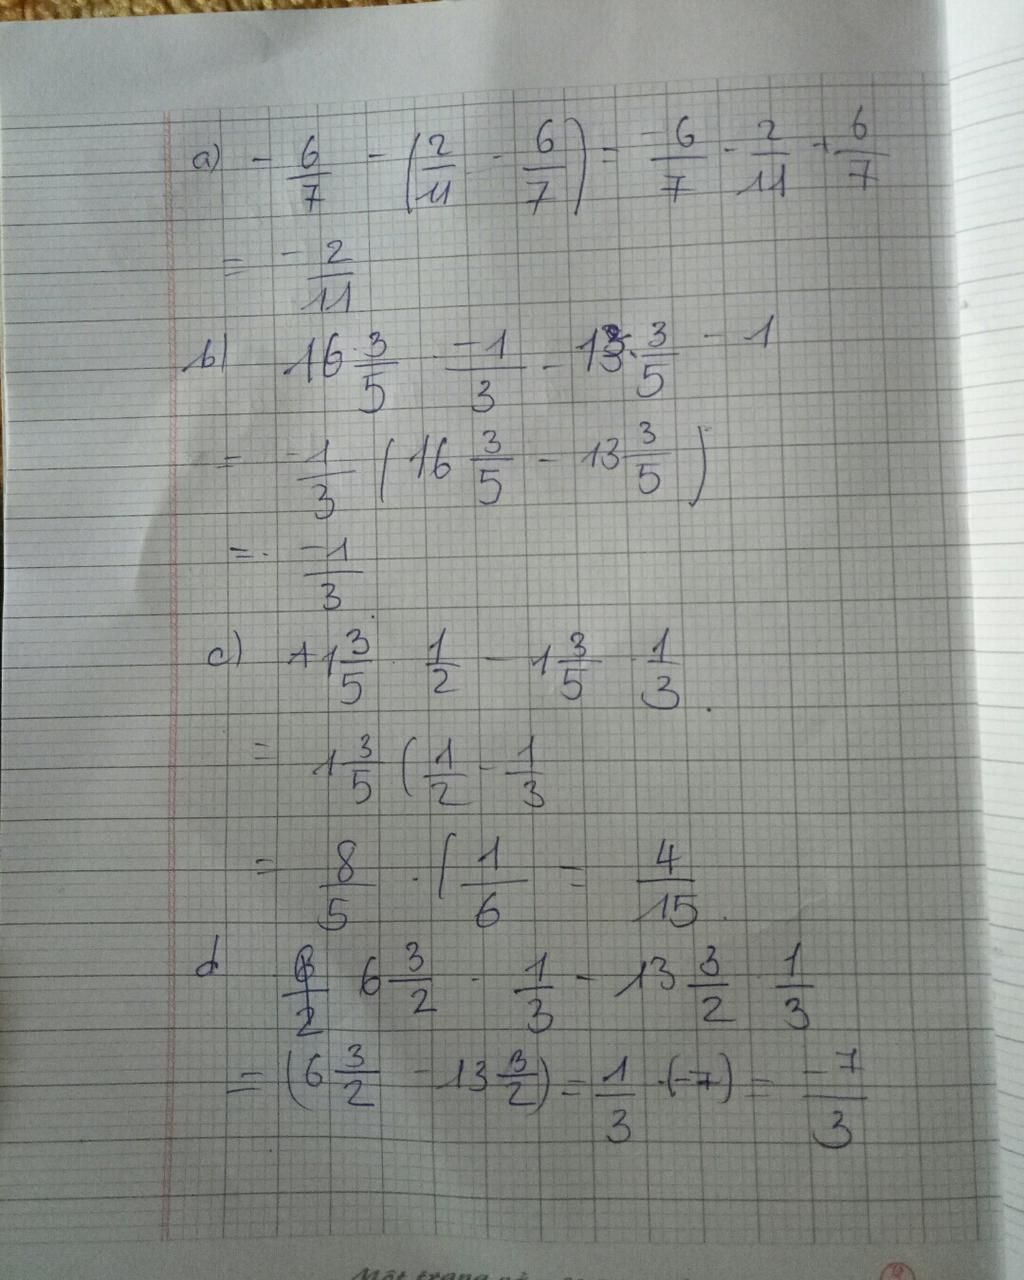 a) - 6/7 - (2/11 - 6/7) = -6/7 - 2/11 + 6/7
= -2/11
b) 16 3/5 . -1/3 - 13 . 3/5 - 1
= -1/3 (16 3/5 - 13 3/5)
= . -1/3
c) +1 3/5 . 1/2 - 1 3/5 . 1/3 .
= 1 3/5 (1/2 - 1/3
= 8/5 . (1/6 = 4/15 .
d 6 3/2 . 1/3 - 13 3/2 . 1/3
= (6 3/2 - 13 3/2) = 1/3 . (-7) = -7/3